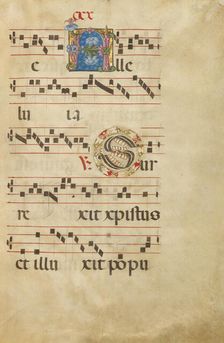 e Alle
lu ia
℣. Sur
re xit xpistus
et illu xit popu